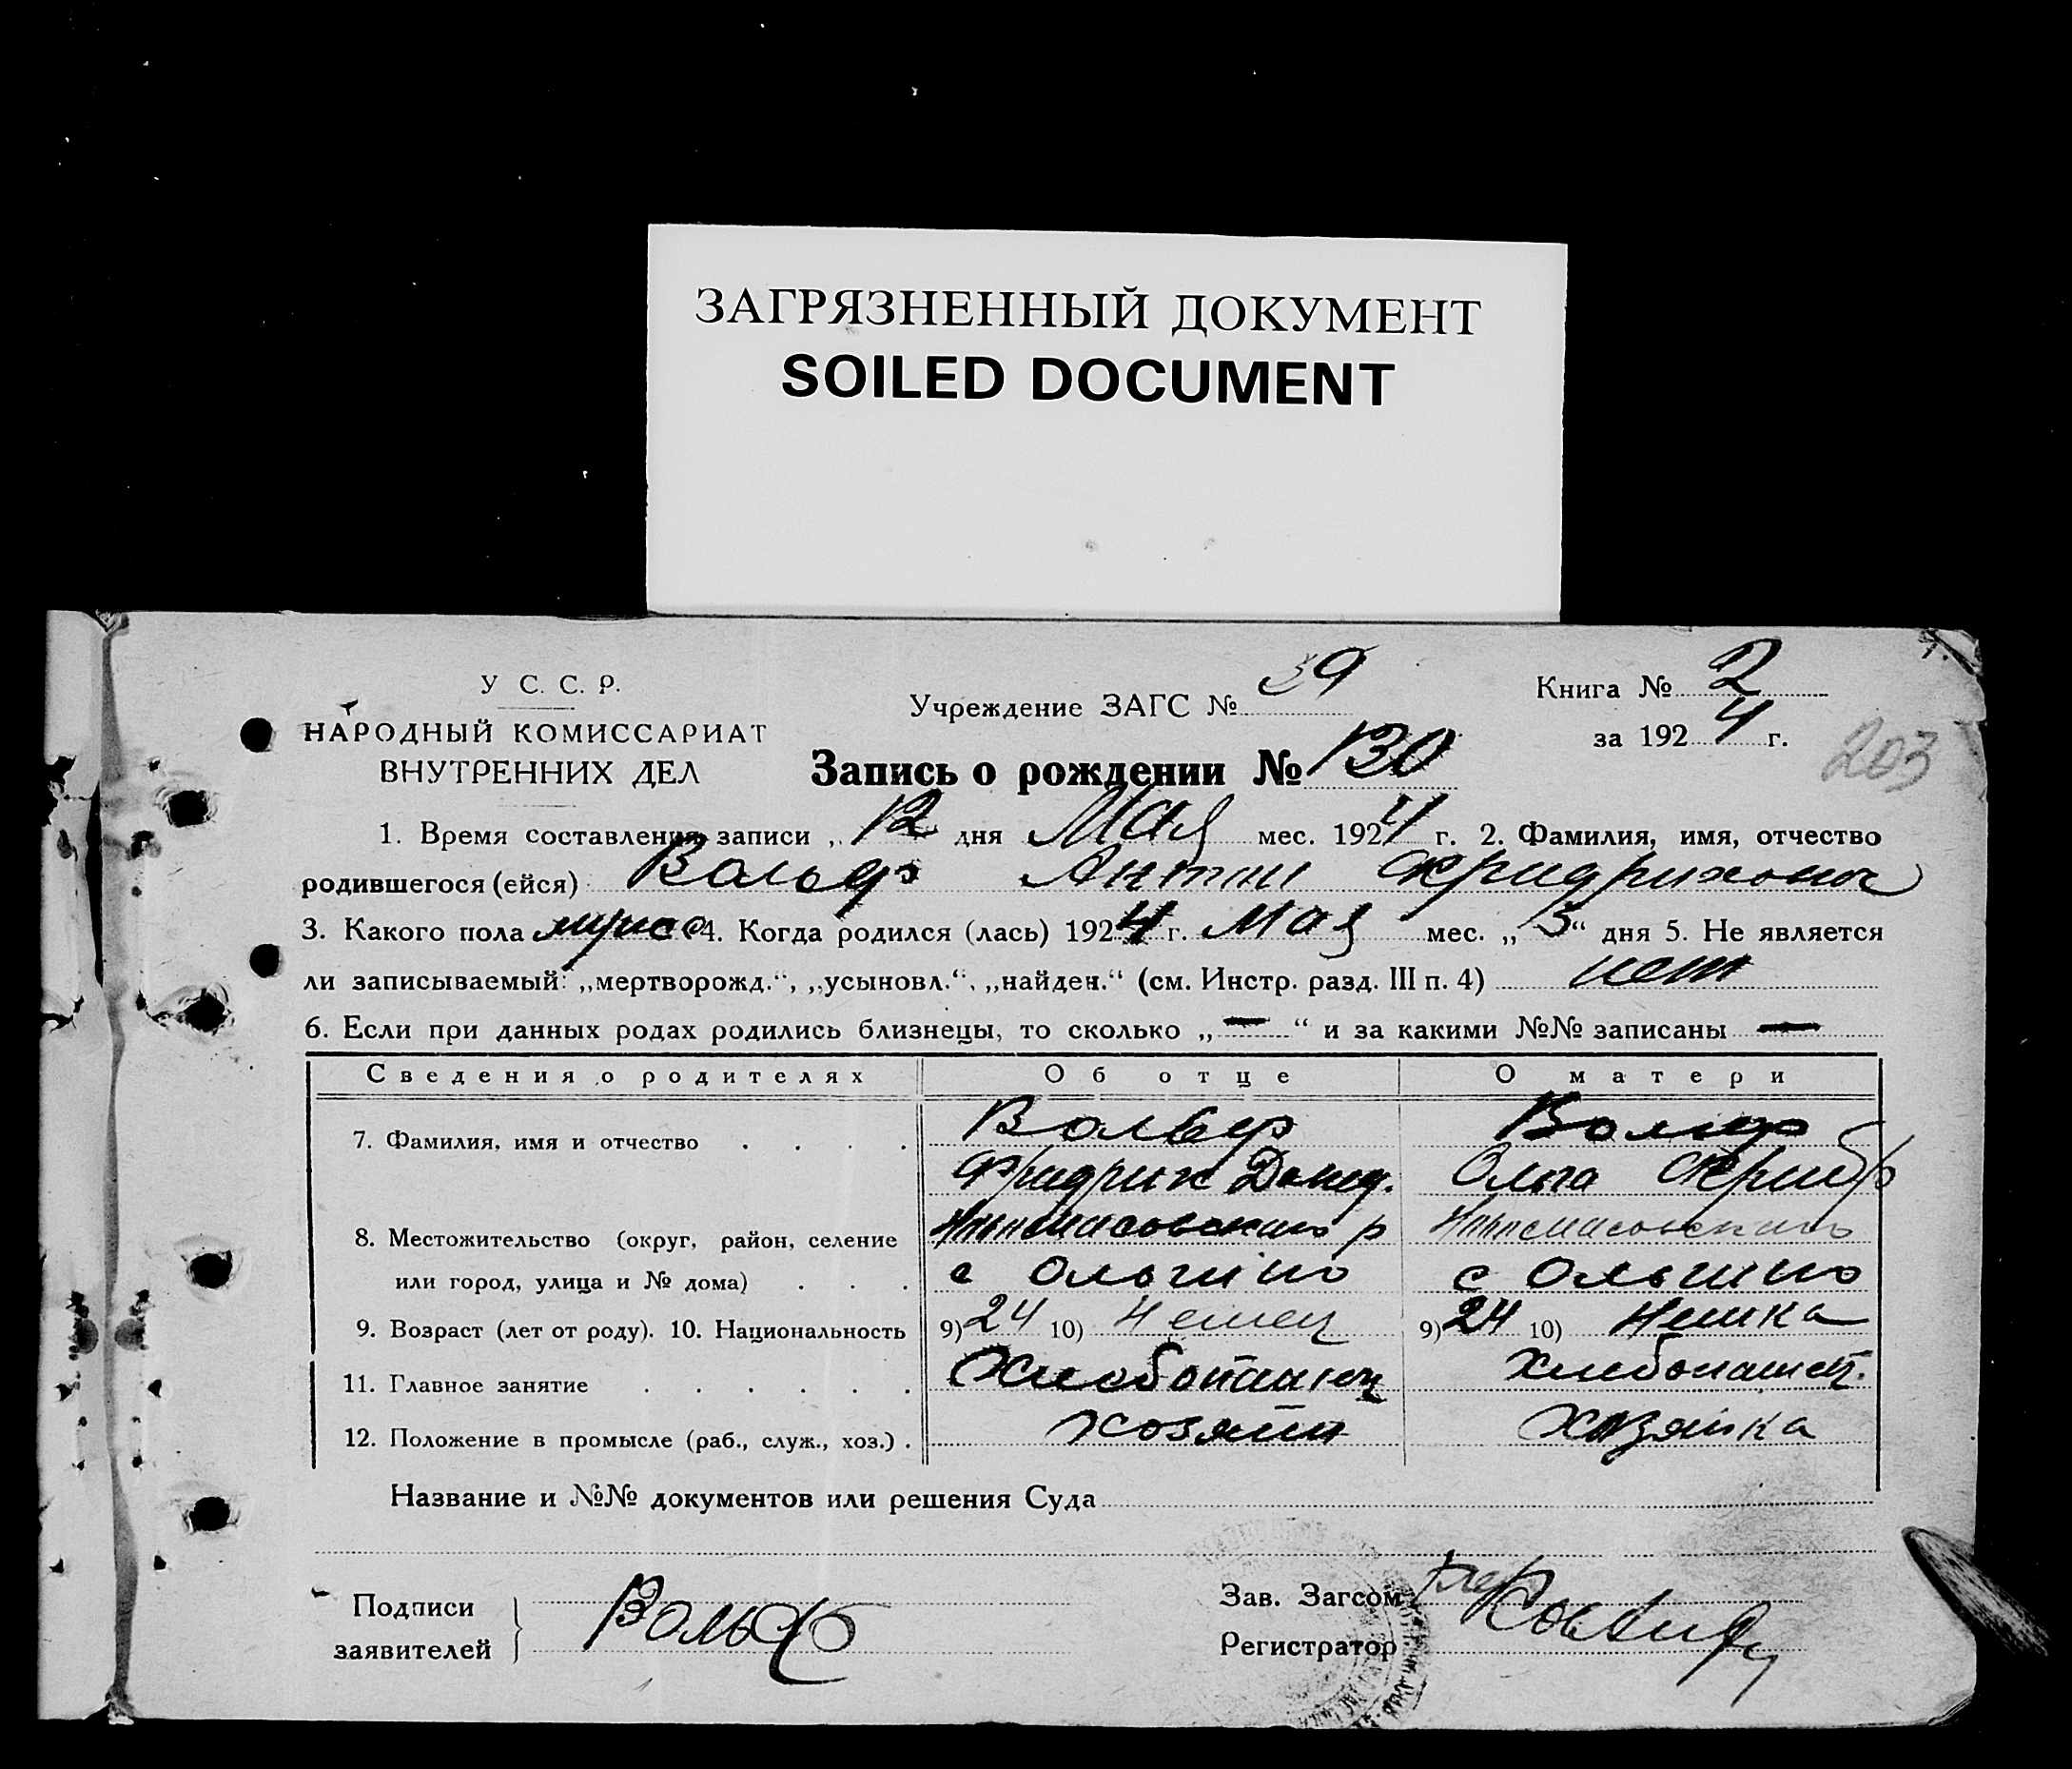 ЗАГРЯЗНЕННЫЙ ДОКУМЕНТ
SOILED DOCUMENT
У С. С. Р.
НАРОДНЫЙ КОМИССАРИАТ
ВНУТРЕННИХ ДЕЛ
Учреждение ЗАГС № 39
Книга № 2
за 1924 г.
203
Запись о рождении № 130
1. Время составления записи „12 дня Мая мес. 1924 г. 2. Фамилия, имя, отчество
родившегося (ейся) Вольф Антон Фридрихович
3. Какого пола мужс 4. Когда родился (лась) 1924 г. Мая мес. „5“ дня 5. Не является
ли записываемый: „мертворожд.“, „усыновл.“, „найден.“ (см. Инстр. разд. III п. 4) нет
6. Если при данных родах родились близнецы, то сколько „—“ и за какими №№ записаны —
Сведения о родителях Об отце О матери
7. Фамилия, имя и отчество Вольф Вольф
Фридрих Ольга
8. Местожительство (округ, район, селение р
или город, улица и № дома) с Ольгино с Ольгино
9. Возраст (лет от роду). 10. Национальность 9) 24 10) Немец 9) 24 10) Немка
11. Главное занятие Хлебопашец Хлебопашец.
12. Положение в промысле (раб., служ., хоз.) Хозяин Хозяйка
Название и №№ документов или решения Суда
Подписи
заявителей
Вольф
Зав. Загсом
Регистратор